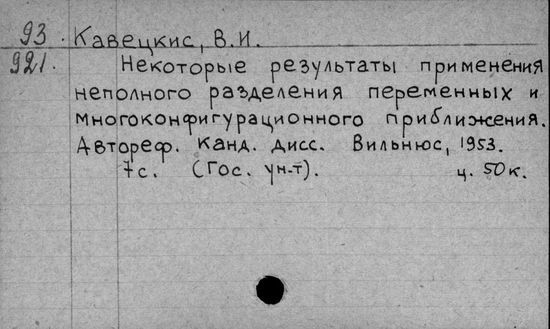 93. Кавецкис, В.И.
921. Некоторые результаты применения
неполного разделения переменных и
многоконфигурационного приближения.
Автореф. канд. дисс. Вильнюс, 1953.
7с. (Гос. ун-т). ц. 50к.